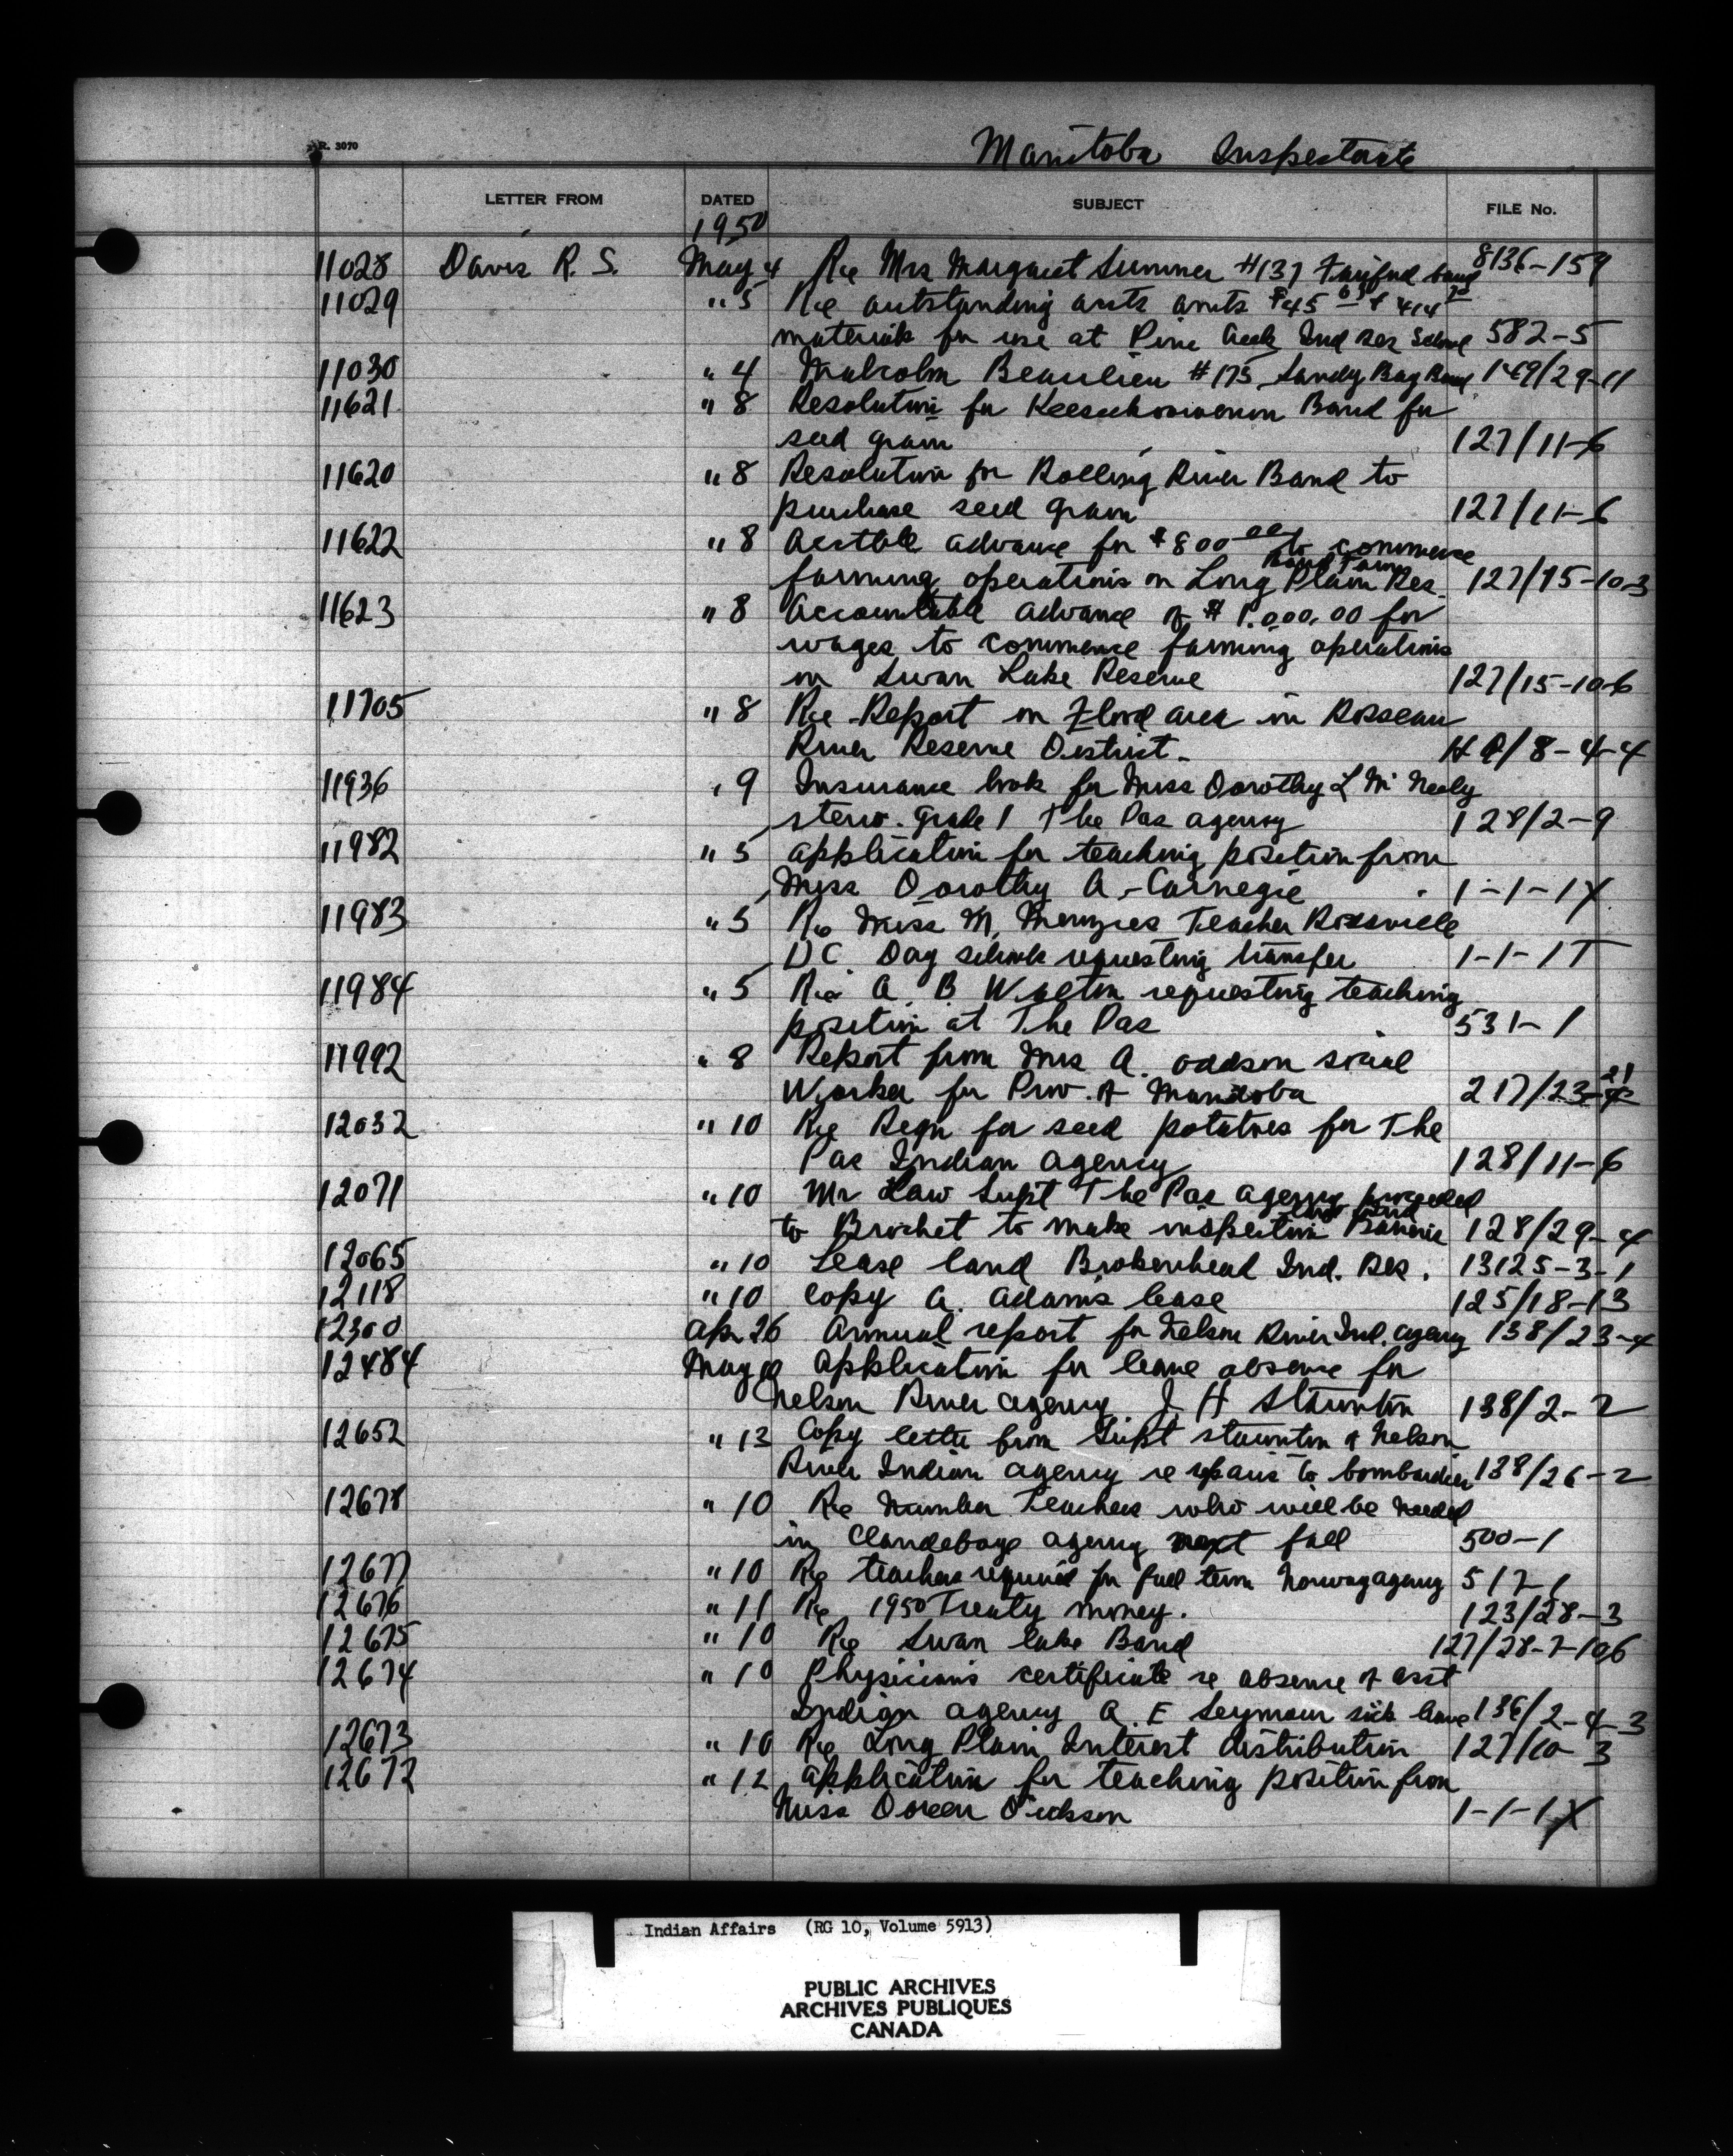 R. 3070
Manitoba Inspectorate
LETTER FROM DATED SUBJECT FILE No.
1950
11028 Davis R. S. May 4 Re Mrs Margaret Sumner #137 Fairford band 8136-159
11029 " 5 Re outstanding accts amts $45 &
materials for use at Pine Creek Ind Res School 582-5
11030 " 4 Malcolm Beaulieu #175 Sandy Bay Band 149/29-11
11621 " 8 Resolution for Keeseekoowenin Band for
seed grain 127/11-6
11620 " 8 Resolution for Rolling River Band to
purchase seed grain 127/11-6
11622 " 8 advance for $800 00 to commence
Band Farm
farming operations on Long Plain Res. 127/15-10-3
11623 " 8 Accountable advance of $1,000.00 for
wages to commence farming operations
on Swan Lake Reserve 127/15-10-6
11705 " 8 Re Report on Flood area in Rosseau
River Reserve District. HQ/8-4-4
11936 " 9 Insurance book for Miss Dorothy L McNeely
steno. grade 1 The Pas agency 128/2-9
11982 " 5 application for teaching position from
Miss Dorothy A. Carnegie 1-1-1X
11983 " 5 Re Miss M. Menzies Teacher Rossville
Day school requesting transfer 1-1-1T
11984 " 5 Re A. B. Walton requesting teaching
position at The Pas 531-1
11992 " 8 Report from Mrs A. oddson social
Worker for Prov. of Manitoba 217/23-21
12032 " 10 Re Reqn for seed potatoes for The
Pas Indian agency 128/11-6
12071 " 10 Mr Law Supt The Pas agency proceeded
to Brochet to make inspection Barrens 128/29-4
12065 " 10 Lease land Brokenhead Ind. Res. 13125-3-1
12118 " 10 Copy A. Adams lease 125/18-13
12300 Apr 26 Annual report for Nelson River Ind. agency 138/23-4
12484 May 10 Application for leave absence for
Nelson River agency J H Staunton 138/2-2
12652 " 13 Copy letter from Supt Staunton of Nelson
River Indian agency re repairs to bombardier 138/26-2
12678 " 10 Re Number Teachers who will be needed
in Clandeboye agency next fall 500-1
12677 " 10 Re teachers required for fall term Norway agency 517-1
12676 " 11 Re 1950 Treaty money. 123/28-3
12675 " 10 Re Swan Lake Band 127/28-7-106
12674 " 10 Physicians certificate re absence of asst
Indian agency A. E Seymour sick leave 136/2-4-3
12673 " 10 Re Long Plain Interest distribution 127/10-3
12672 " 12 application for teaching position from
Miss Doreen Dickson 1-1-1X
Indian Affairs (RG 10, Volume 5913)
PUBLIC ARCHIVES
ARCHIVES PUBLIQUES
CANADA